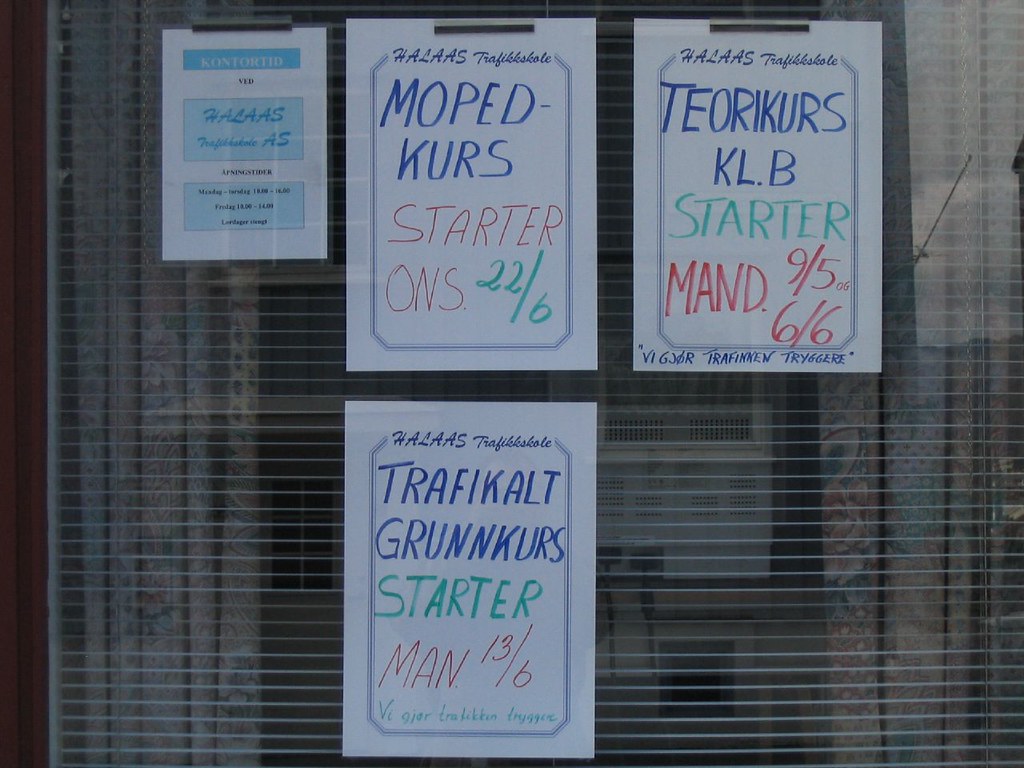 KONTORTID
VED
HALAAS
Trafikkskole AS
ÅPNINGSTIDER
Mandag - torsdag 10.00 - 16.00
Fredag 10.00 - 14.00
Lørdager stengt
HALAAS Trafikkskole
MOPED-
KURS
STARTER
ONS. 22/6
HALAAS Trafikkskole
TEORIKURS
KL.B
STARTER
MAND. 9/5 OG
6/6
"VI GJØR TRAFIKKEN TRYGGERE"
HALAAS Trafikkskole
TRAFIKALT
GRUNNKURS
STARTER
MAN. 13/6
Vi gjør trafikken tryggere